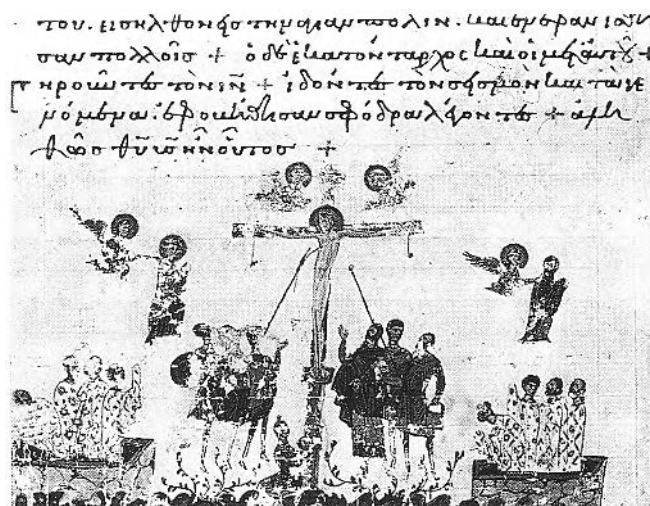 του. εισῆλθον εἰς τὴν ἁγίαν πόλιν. καὶ ἐνεφανίσθη
σαν πολλοῖς + ὁ δὲ ἑκατόνταρχος καὶ οἱ μετ αυτοῦ τ
ηροῦντες τὸν ιν̅ + ἰδόντες τὸν σεισμὸν καὶ τὰ γε
νόμενα. ἐφοβήθησαν σφόδρα λέγοντες + ἀλη
θῶς θυ̅ υἱὸς ἦν οὗτος +